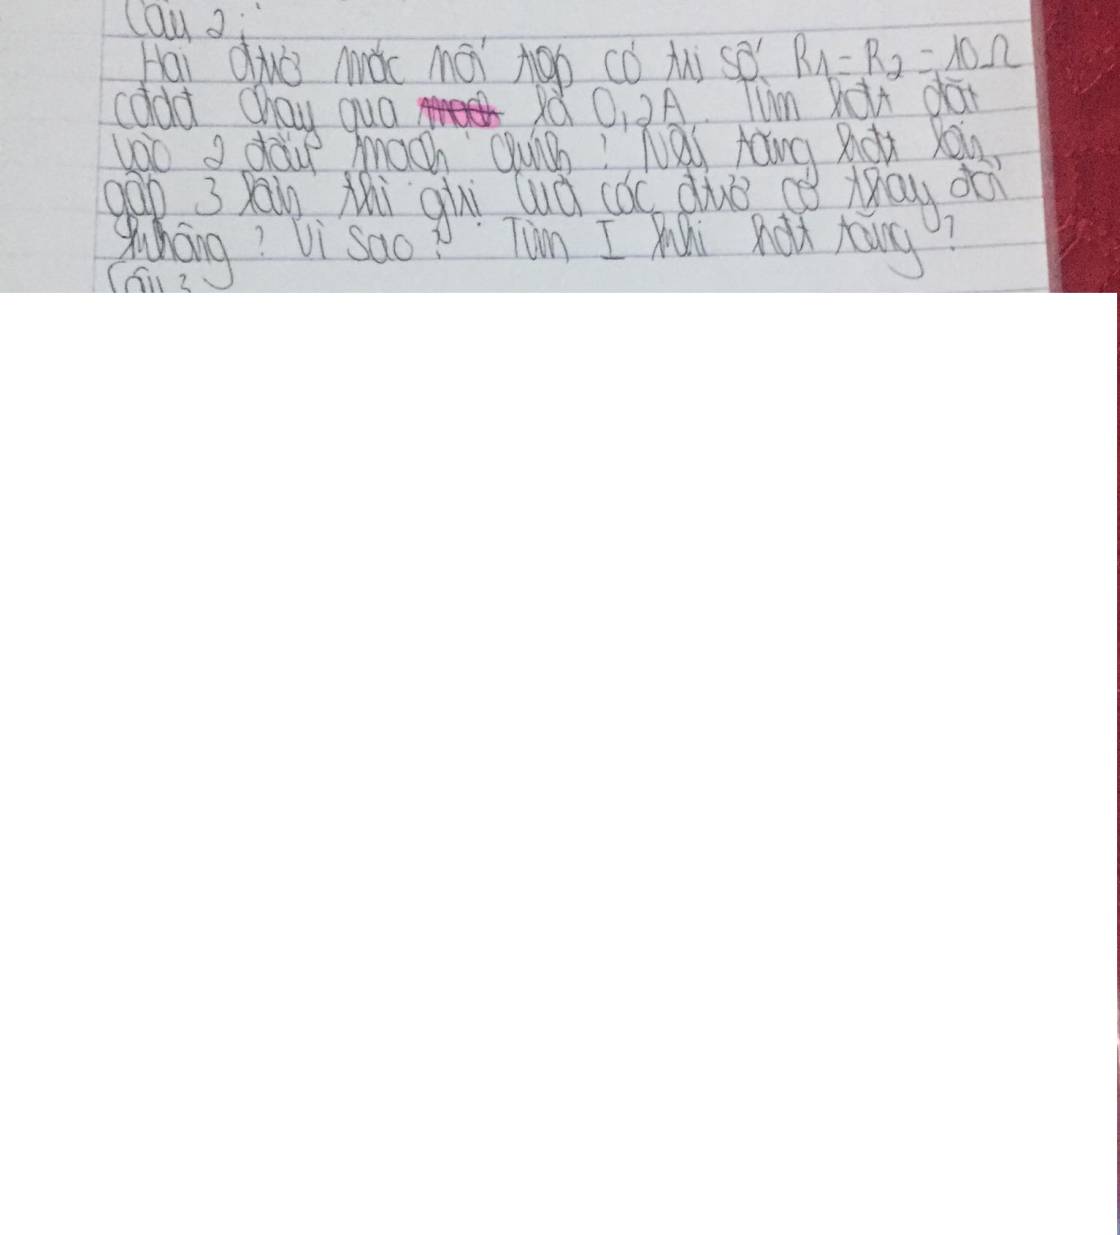 Câu 2:
Hai đtrở mắc nối tiếp có trị số R1 = R2 = 10Ω
cđdđ chạy qua mạch là 0,2A. Tìm hđt đặt
vào 2 đầu mạch chính? Nếu tăng hđt lên
gấp 3 lần thì giá trị của các đtrở có thay đổi
không? Vì sao? Tìm I khi hđt tăng?
Câu 3